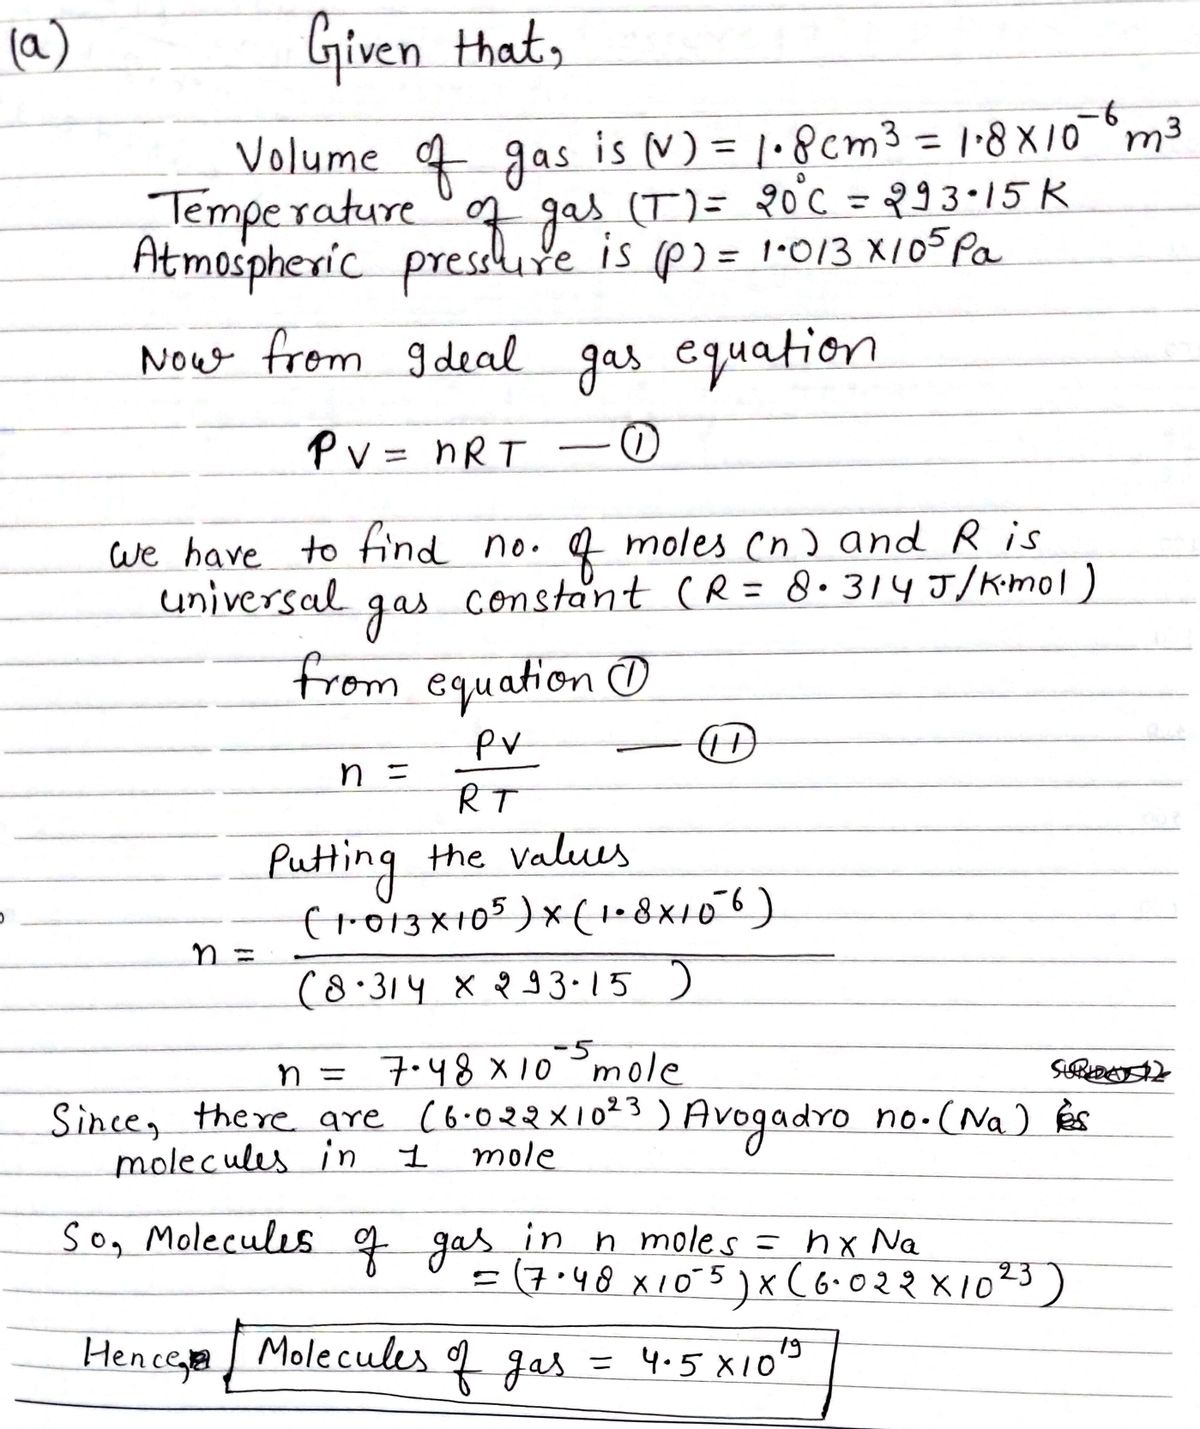 (a) Given that,
Volume of gas is (V) = 1.8cm³ = 1.8×10⁻⁶ m³
Temperature of gas (T) = 20°C = 293.15 K
Atmospheric pressure is (p) = 1.013 ×10⁵ Pa
Now from Ideal gas equation
PV = nRT — ①
we have to find no. of moles (n) and R is
universal gas constant (R = 8.314 J/K·mol)
from equation ①
n = PV / RT — ⑪
Putting the values
n = (1.013×10⁵)×(1.8×10⁻⁶) / (8.314 × 293.15 )
n = 7.48 ×10⁻⁵ mole
Since, there are (6.022×10²³) Avogadro no.(Na)
molecules in 1 mole
So, Molecules of gas in n moles = n× Na
= (7.48 ×10⁻⁵)×(6.022 ×10²³)
Hence, Molecules of gas = 4.5 ×10¹⁹